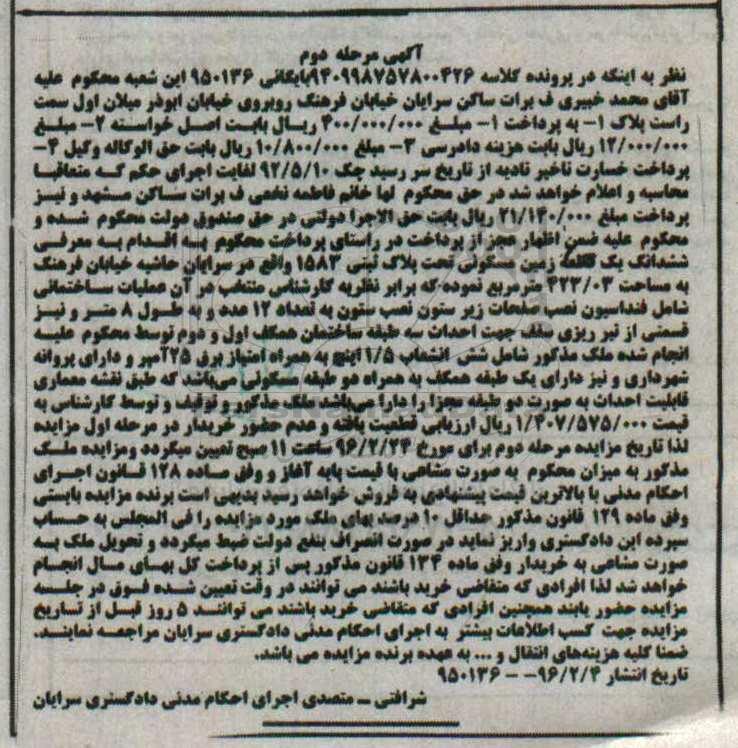 آگهی مرحله دوم
نظر به اینکه در پرونده کلاسه ۹۴۰۹۹۸۷۵۷۸۰۰۴۲۶بایگانی ۹۵۰۱۳۶ این شعبه محکوم علیه
آقای محمد خبیری ف برات ساکن سرایان خیابان فرهنگ روبروی خیابان ابوذر میلان اول سمت
راست پلاک ۱- به پرداخت ۱- مبلغ ۴۰۰/۰۰۰/۰۰۰ ریال بابت اصل خواسته ۲- مبلغ
۱۲/۰۰۰/۰۰۰ ریال بابت هزینه دادرسی ۳- مبلغ ۱۰/۸۰۰/۰۰۰ ریال بابت حق الوکاله وکیل ۴-
پرداخت خسارت تاخیر تادیه از تاریخ سر رسید چک ۹۲/۵/۱۰ لغایت اجرای حکم که متعاقبا
محاسبه و اعلام خواهد شد در حق محکوم لها خانم فاطمه نخعی ف برات ساکن مشهد و نیز
پرداخت مبلغ ۲۱/۱۴۰/۰۰۰ ریال بابت حق الاجرا دولتی در حق صندوق دولت محکوم شده و
محکوم علیه ضمن اظهار عجز از پرداخت در راستای پرداخت محکوم به اقدام به معرفی
ششدانگ یک قطعه زمین مسکونی تحت پلاک ثبتی ۱۵۸۳ واقع در سرایان حاشیه خیابان فرهنگ
به مساحت ۴۲۳/۰۳ مترمربع نموده که برابر نظریه کارشناس منتخب در آن عملیات ساختمانی
شامل فنداسیون نصب صفحات زیر ستون نصب ستون به تعداد ۱۲ عدد و به طول ۸ متر و نیز
قسمتی از تیر ریزی سقف جهت احداث سه طبقه ساختمان همکف اول و دوم توسط محکوم علیه
انجام شده ملک مذکور شامل شش انشعاب ۱/۵ اینچ به همراه امتیاز برق ۲۵آمپر و دارای پروانه
شهرداری و نیز دارای یک طبقه همکف به همراه دو طبقه مسکونی می‌باشد که طبق نقشه معماری
قابلیت احداث به صورت دو طبقه مجزا را دارا می‌باشد ملک مذکور و توقیف و توسط کارشناس به
قیمت ۱/۴۰۷/۵۷۵/۰۰۰ ریال ارزیابی قطعیت یافته و عدم حضور خریدار در مرحله اول مزایده
لذا تاریخ مزایده مرحله دوم برای مورخ ۹۶/۲/۲۴ ساعت ۱۱ صبح تعیین میگردد ومزایده ملک
مذکور به میزان محکوم به صورت مشاعی با قیمت پایه آغاز و وفق ماده ۱۲۸ قانون اجرای
احکام مدنی با بالاترین قیمت پیشنهادی به فروش خواهد رسید بدیهی است برنده مزایده بایستی
وفق ماده ۱۲۹ قانون مذکور حداقل ۱۰ درصد بهای ملک مورد مزایده را فی المجلس به حساب
سپرده این دادگستری واریز نماید در صورت انصراف بنفع دولت ضبط میگردد و تحویل ملک به
صورت مشاعی به خریدار وفق ماده ۱۳۴ قانون مذکور پس از پرداخت کل بهای مال انجام
خواهد شد لذا افرادی که متقاضی خرید باشند می توانند در وقت تعیین شده فوق در جلسه
مزایده حضور یابند همچنین افرادی که متقاضی خرید باشند می توانند ۵ روز قبل از تاریخ
مزایده جهت کسب اطلاعات بیشتر به اجرای احکام مدنی دادگستری سرایان مراجعه نمایند.
ضمنا کلیه هزینه‌های انتقال و ... به عهده برنده مزایده می باشد.
تاریخ انتشار ۹۶/۲/۴- - ۹۵۰۱۳۶
شرافتی - متصدی اجرای احکام مدنی دادگستری سرایان